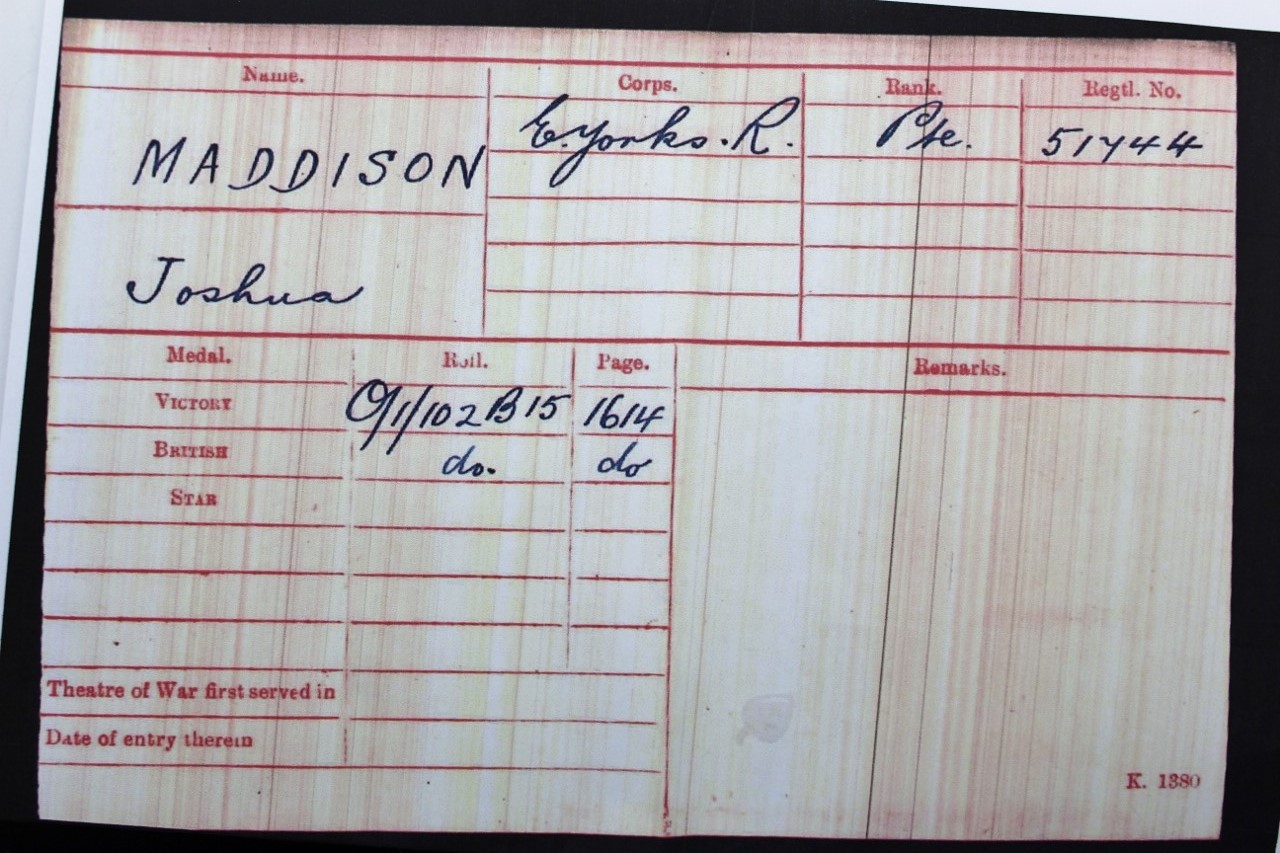 Name. Corps. Rank. Regtl. No.
MADDISON E.Yorks.R. Pte. 51744
Joshua
Medal. Roll. Page. Remarks.
VICTORY O/1/102 B 15 1614
BRITISH do. do
STAR
Theatre of War first served in
Date of entry therein
K. 1380